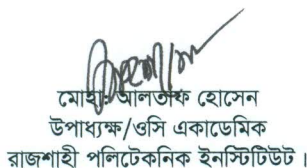 মোহাঃ আলতাফ হোসেন
উপাধ্যক্ষ/ওসি একাডেমিক
রাজশাহী পলিটেকনিক ইনস্টিটিউট।